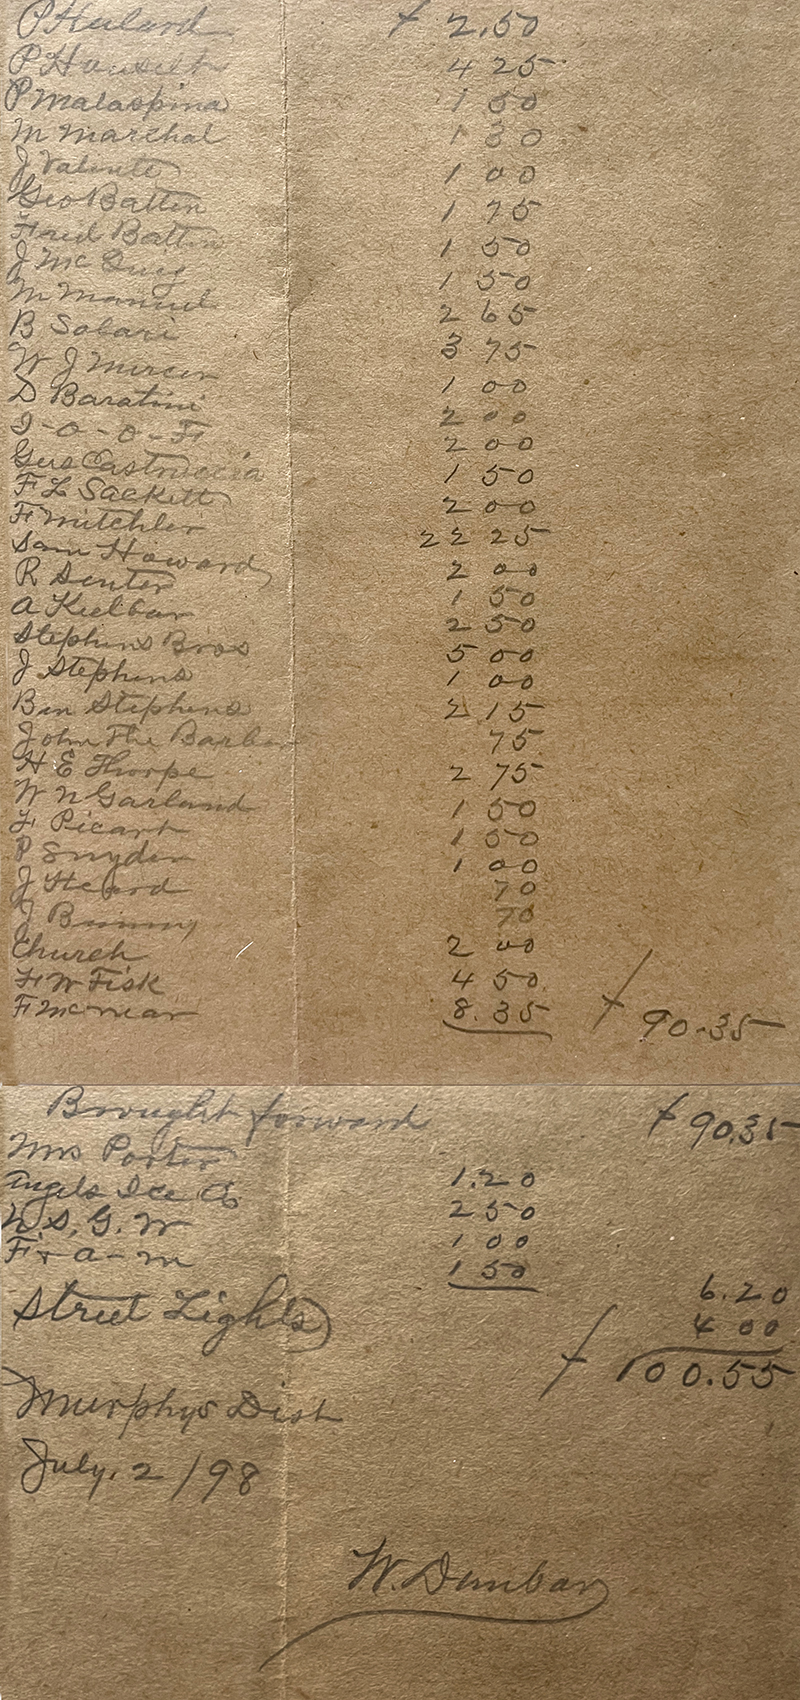 P Heilard $ 2.50
P 4 25
P Malaspina 1 50
M Marchal 1 30
J Valente 1 00
Geo Batten 1 75
Fred Batten 1 50
J Mc 1 50
M Manuel 2 65
B Solari 3 75
W J Mercer 1 00
D Baratini 2 00
I-O-O-F 2 00
Gus Castruccia 1 50
F L Sackett 2 00
F Mitchler 22 25
Sam Howard 2 00
R Senter 1 50
A Keilbar 2 50
Stephens Bros 5 00
J Stephens 1 00
Ben Stephens 2 15
John The Barber 75
H E Thorpe 2 75
W N Garland 1 50
F Picart 1 50
P Snyder 1 00
J Heard 70
J 70
Church 2 00
F W Fisk 4 50
F McNear 8.35 $ 90.35
Brought forward $ 90.35
Mrs Porter 1.20
Angels Ice Co 2 50
N.S.G.W 1 00
F + A - M 1 50 6.20
Street Lights 4 00
$ 100.55
Murphys Dist
July. 2 / 98
W. Dunbar